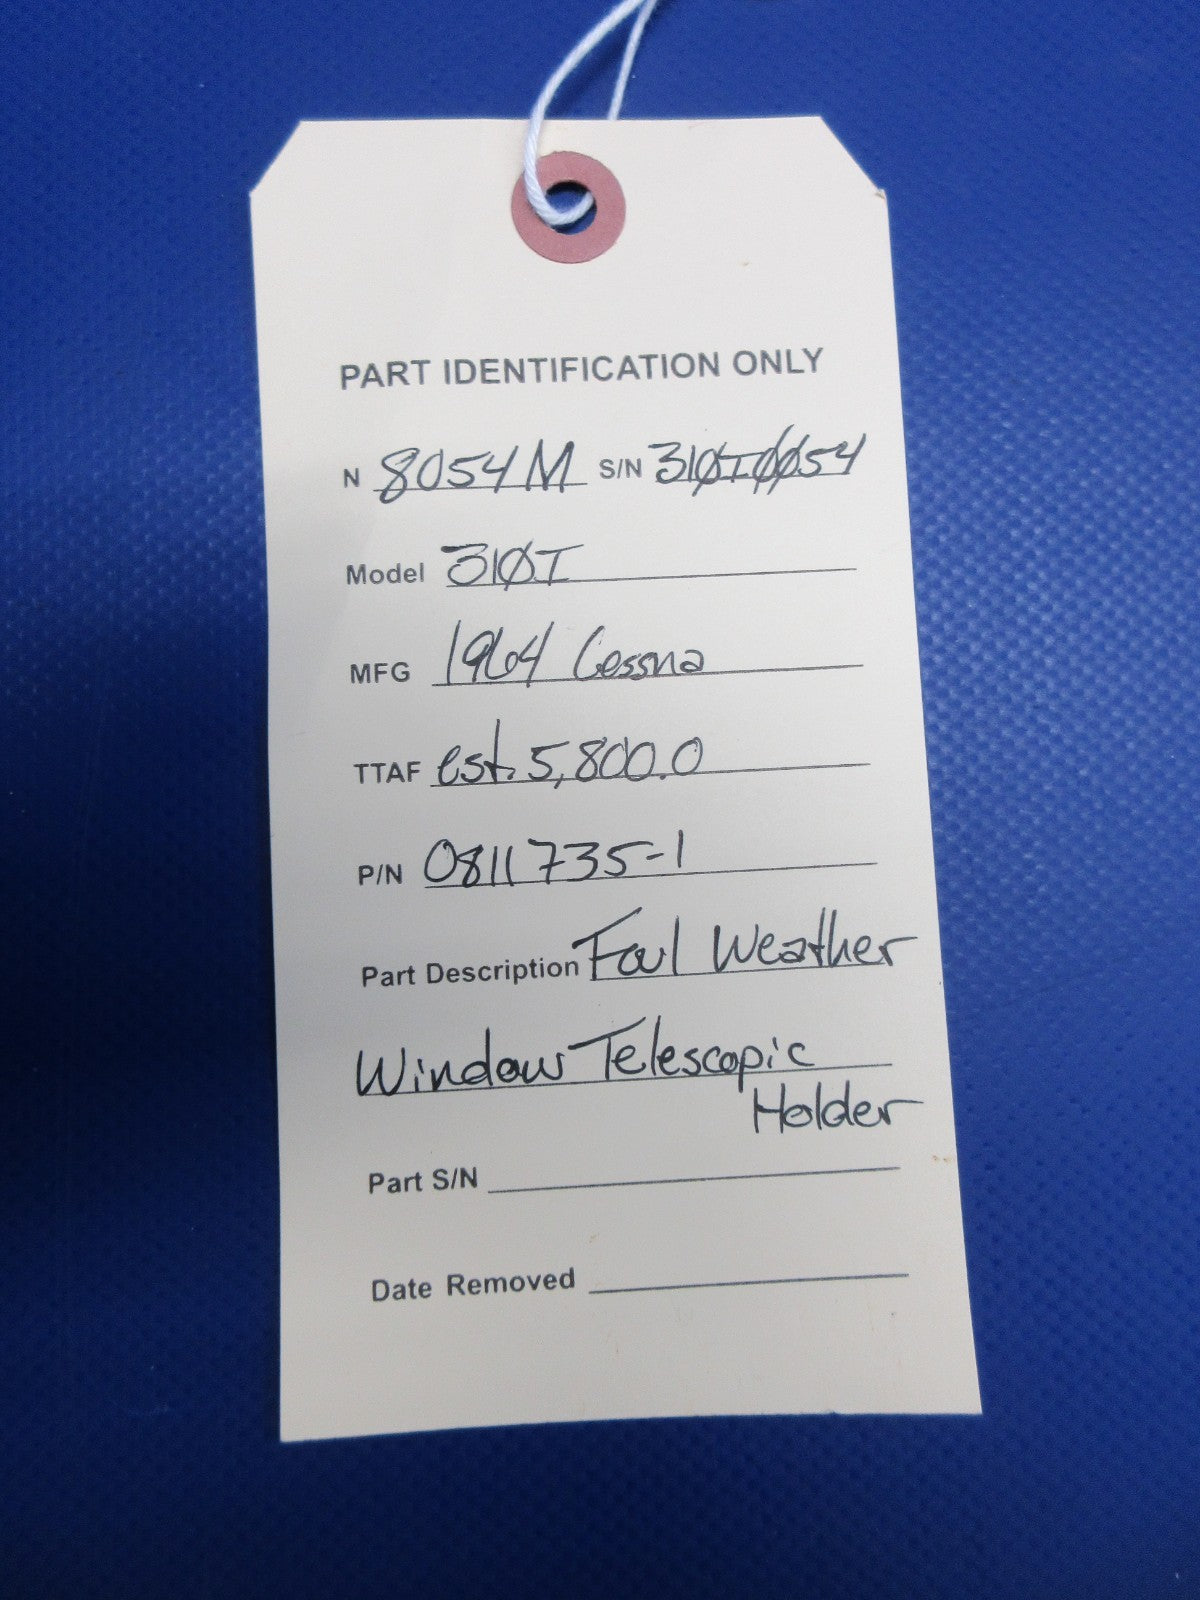 PART IDENTIFICATION ONLY
N 8054M S/N 310I0054
Model 310I
MFG 1964 Cessna
TTAF est. 5,800.0
P/N 0811735-1
Part Description Foul Weather
Window Telescopic
Holder
Part S/N
Date Removed